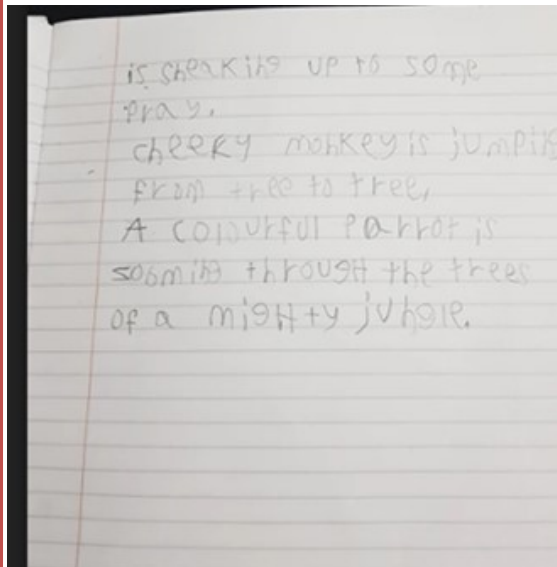 is sneaking up to some
pray.
cheeky monkey is jumpin
from tree to tree,
A colourful parrot is
sooming through the trees
of a mighty jungle.